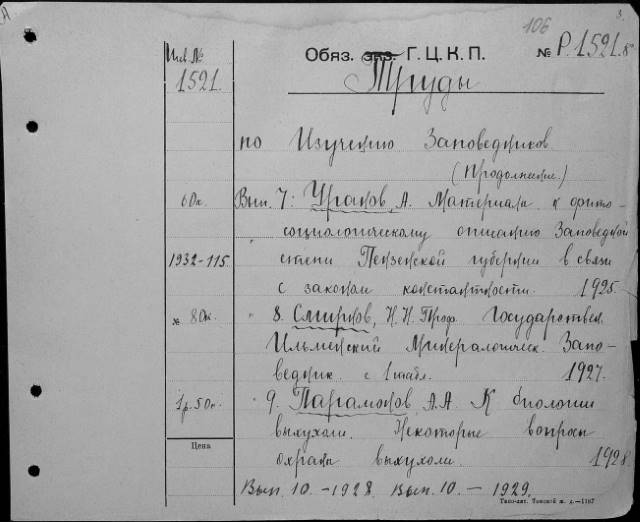 106
3.
Инв. №
Обяз. экз. Г. Ц. К. П.
№ Р.1521.8º
1521.
Труды
по Изучению Заповедников
(Продолжение.)
60к. Вып. 7: Ураков, А. Материалы к фито-
социологическому описанию Заповедной
1932-115. степи Пензенской губернии в связи
с законом константности. 1925.
№ 80к. " 8. Смирнов, Н. Н. Проф. Государствен.
Ильменский Минералогическ. Запо-
ведник. с 1 табл. 1927.
1р.50к. " 9. Парамонов, А.А. К биологии
выхухоли. Некоторые вопросы
Цена
охраны выхухоли. 1928
Вып. 10. - 1928. Вып. 10. - 1929.
Типо-лит. Томской ж. д.—1187